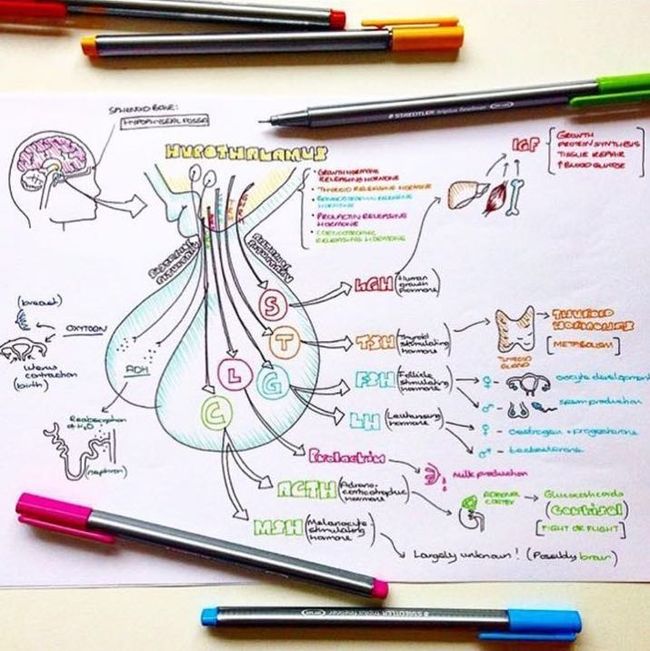 SPHENOID BONE:
HYPOPHYSEAL FOSSA
HYPOTHALAMUS
• GROWTH HORMONE
RELEASING HORMONE
• THYROID RELEASING HORMONE
HORMONE
• PROLACTIN RELEASING
HORMONE
• CORTICOTROPIC
RELEASING HORMONE
STAEDTLER
IGF
GROWTH
PROTEIN SYNTHESIS
TISSUE REPAIR
↑ BLOOD GLUCOSE
S
hGH
(Human
growth
hormone)
T
TSH
(Thyroid
stimulating
hormone)
THYROID
GLAND
THYROID
HORMONES
[METABOLISM]
L
G
C
FSH
(Follicle
stimulating
hormone)
♀ -
oocyte development
♂ -
sperm production
LH
(Leutenising
hormone)
♀ - oestrogen + progesterone
♂ - testosterone
Prolactin
milk production
ACTH
(Adreno-
corticotrophic
hormone)
ADRENAL
CORTEX
Glucocorticoids
(cortisol)
[FIGHT OR FLIGHT]
MSH
(Melanocyte
stimulating
hormone)
Largely unknown! (Possibly brain)
(breast)
OXYTOCIN
uterus
contraction
(birth)
ADH
Reabsorption
of H₂O
(nephron)
STAEDTLER